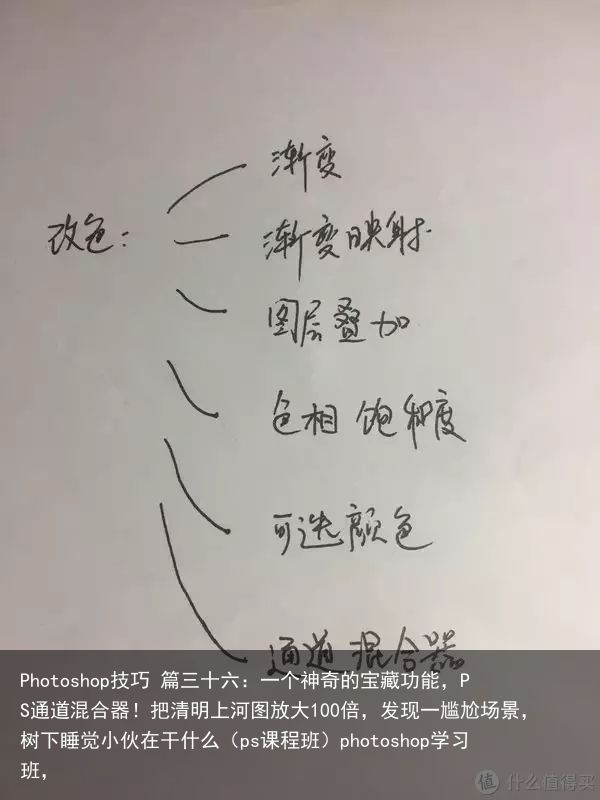 改色：
渐变
渐变映射
图层叠加
色相 饱和度
可选颜色
通道混合器
Photoshop技巧 篇三十六：一个神奇的宝藏功能，P
S通道混合器！把清明上河图放大100倍，发现一尴尬场景，
树下睡觉小伙在干什么（ps课程班）photoshop学习
班，
值 什么值得买